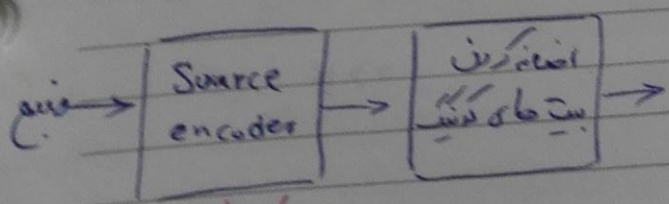 منبع
Source
encoder
اضافه کردن
بیت های کنترلی